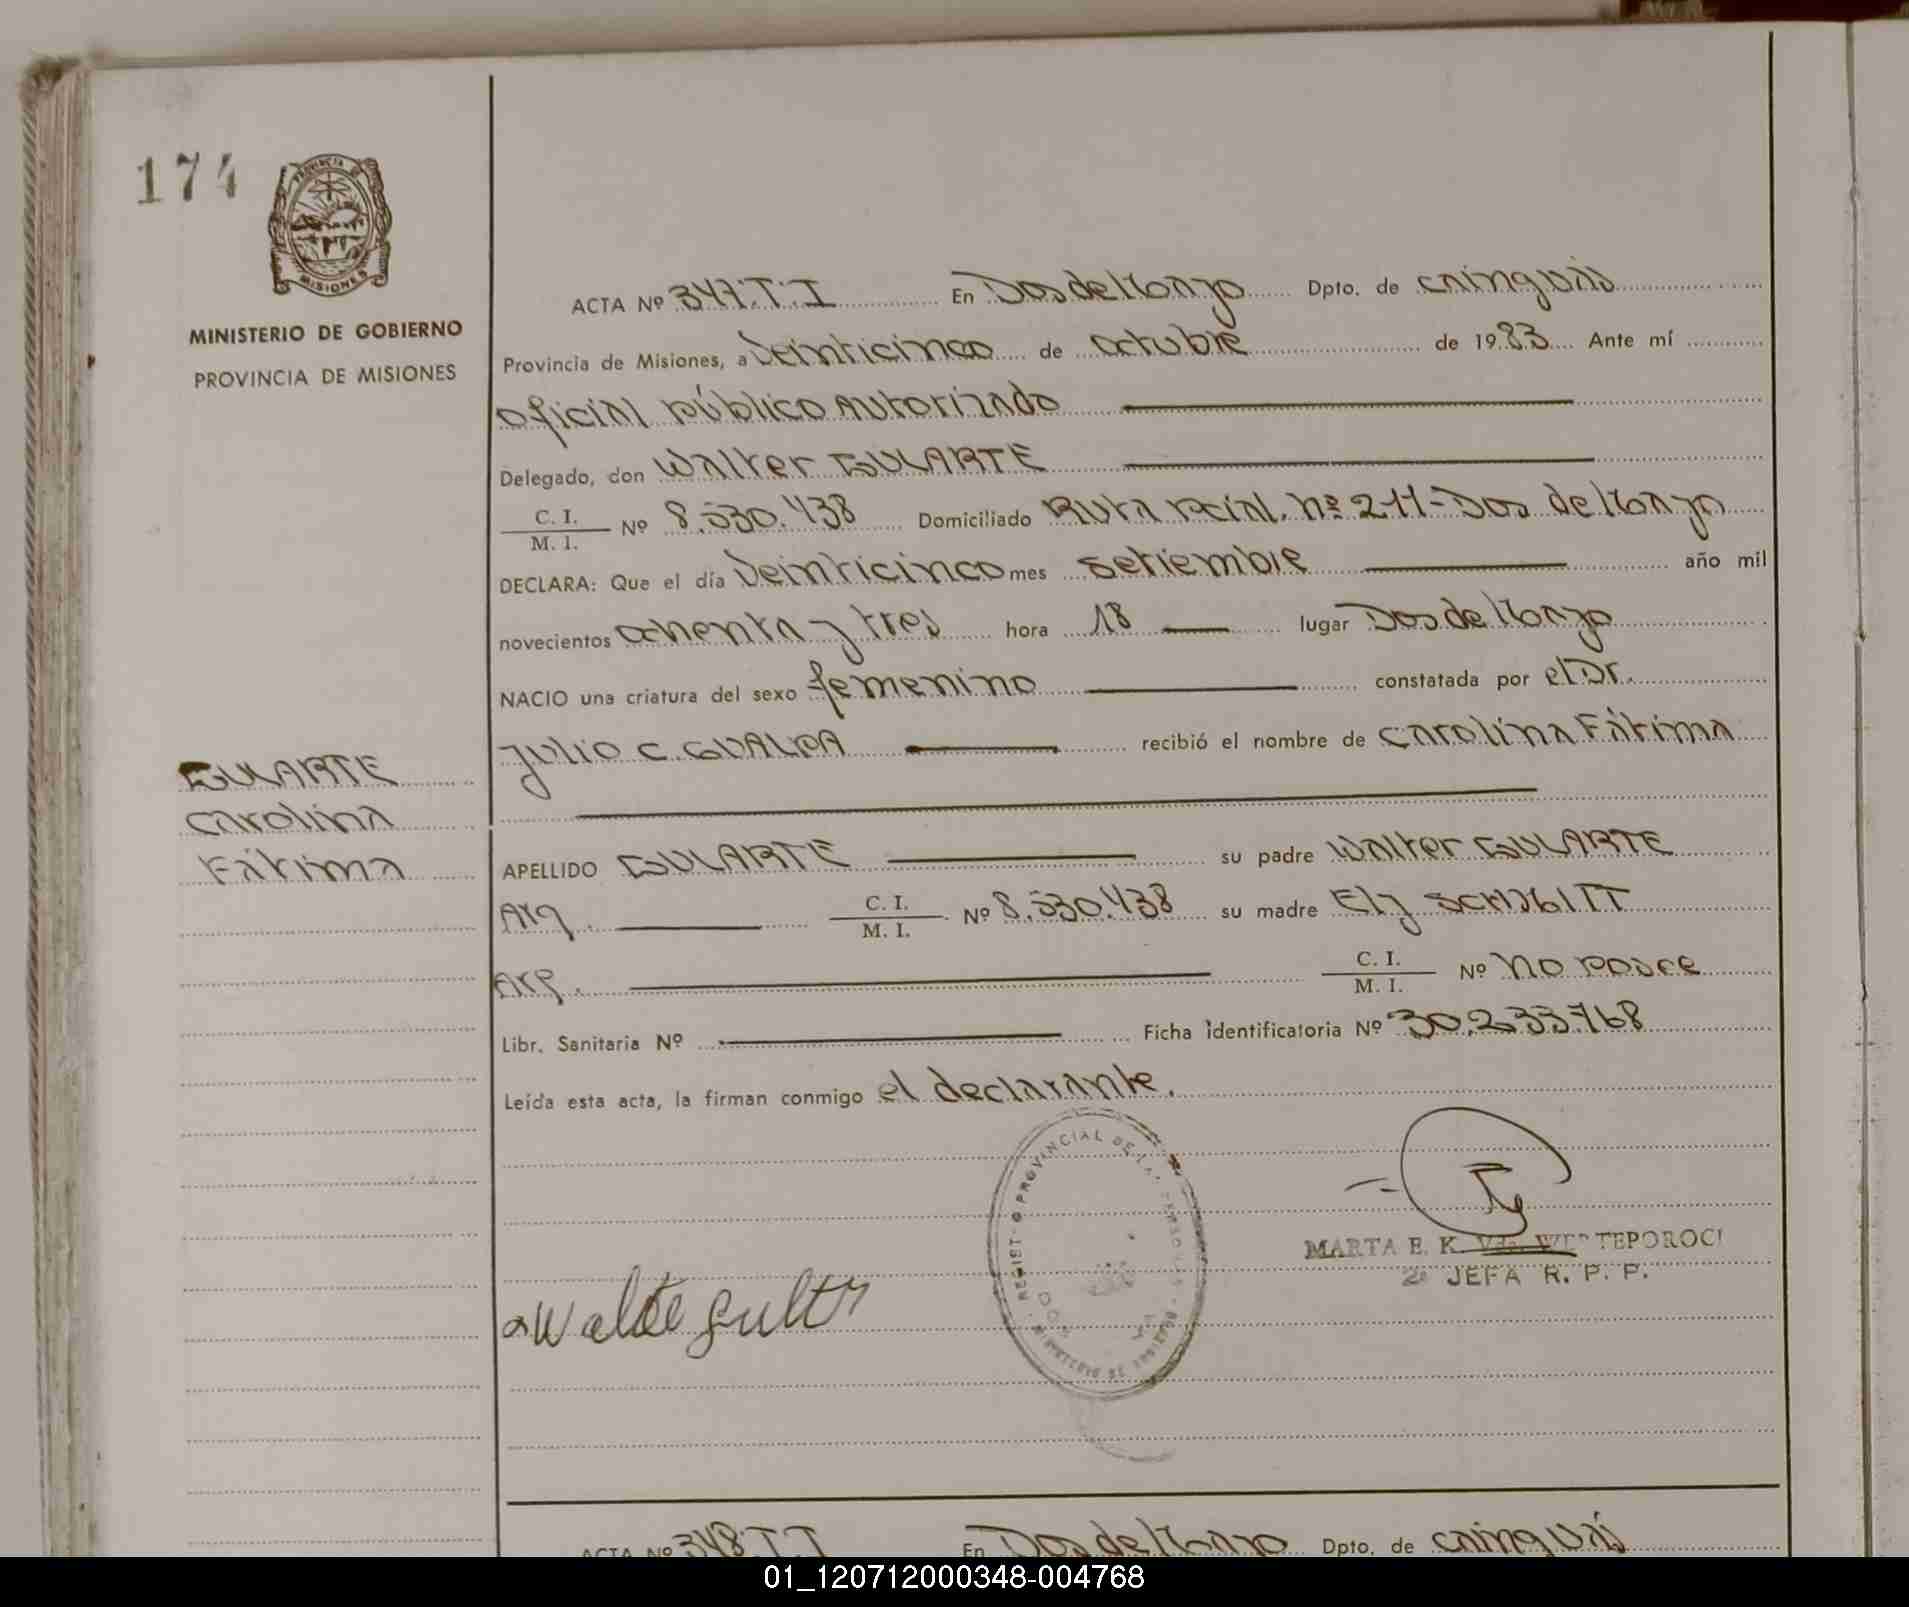 174
PROVINCIA DE
MISIONES
MINISTERIO DE GOBIERNO
PROVINCIA DE MISIONES
ACTA Nº 347. T. I En Dos de Mayo Dpto. de Cainguás
Provincia de Misiones, a veinticinco de octubre de 1983 Ante mí
oficial público autorizado
Delegado, don Walter GULARTE
C. I.
M. I. Nº 8.530.438 Domiciliado Ruta Pcial. Nº 211-Dos de Mayo
DECLARA: Que el día veinticinco mes setiembre año mil
novecientos ochenta y tres hora 18 lugar Dos de Mayo
NACIO una criatura del sexo femenino constatada por el Dr.
Julio C. GUALPA recibió el nombre de Carolina Fátima
GULARTE
Carolina
Fátima
APELLIDO GULARTE su padre Walter GULARTE
Arg. C. I.
M. I. Nº 8.530.438 su madre Ely SCHMITT
Arg. C. I.
M. I. Nº no posee
Libr. Sanitaria Nº Ficha identificatoria Nº 30.233.768
Leída esta acta, la firman conmigo el declarante.
REGISTRO PROVINCIAL DE LAS PERSONAS
MINISTERIO DE GOBIERNO
MARTA E. K. Vda.
2º JEFA R. P. P.
ACTA Nº 348. T. I En Dos de Mayo Dpto. de Cainguás
01_120712000348-004768